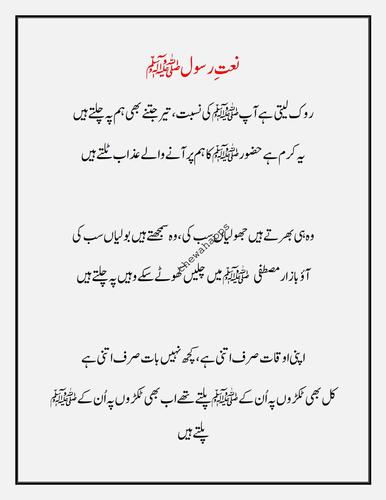 نعتِ رسول ﷺ
روک لیتی ہے آپ ﷺ کی نسبت، تیر جتنے بھی ہم پہ چلتے ہیں
یہ کرم ہے حضور ﷺ کا ہم پر آنے والے عذاب ٹلتے ہیں
وہ ہی بھرتے ہیں جھولیاں سب کی، وہ سمجھتے ہیں بولیاں سب کی
آؤ بازار مصطفٰی ﷺ میں چلیں کھوٹے سکے وہیں پہ چلتے ہیں
اپنی اوقات صرف اتنی ہے، کچھ نہیں بات صرف اتنی ہے
کل بھی ٹکڑوں پہ اُن کے ﷺ پلتے تھے اب بھی ٹکڑوں پہ اُن کے ﷺ
پلتے ہیں